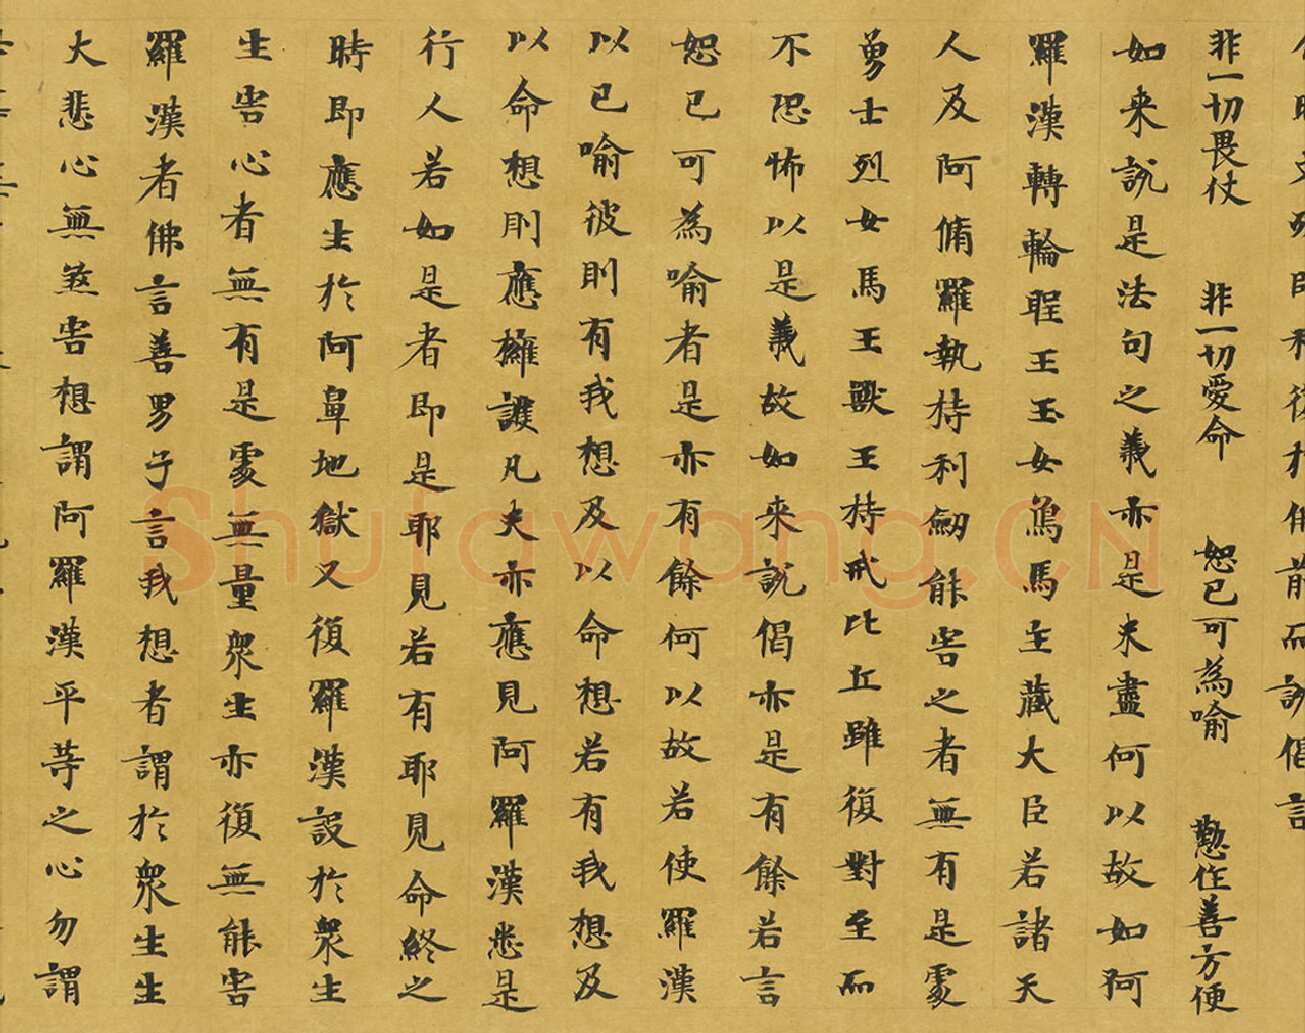 師利復於佛前而說偈言
非一切畏仗　非一切愛命　恕己可為喻　懃作善方便
如来說是法句之義亦是未盡何以故如阿
羅漢轉輪聖王玉女象馬主藏大臣若諸天
人及阿脩羅執持利劒能害之者無有是處
勇士烈女馬王獸王持戒比丘雖復對至而
不恐怖以是義故如来說偈亦是有餘若言
恕己可為喻者是亦有餘何以故若使羅漢
以己喻彼則有我想及以命想若有我想及
以命想則應擁護凡夫亦應見阿羅漢悉是
行人若如是者即是耶見若有耶見命終之
時即應生於阿鼻地獄又復羅漢設於眾生
生害心者無有是處無量眾生亦復無能害
羅漢者佛言善男子言我想者謂於眾生生
大悲心無煞害想謂阿羅漢平等之心勿謂
Shufawang.CN